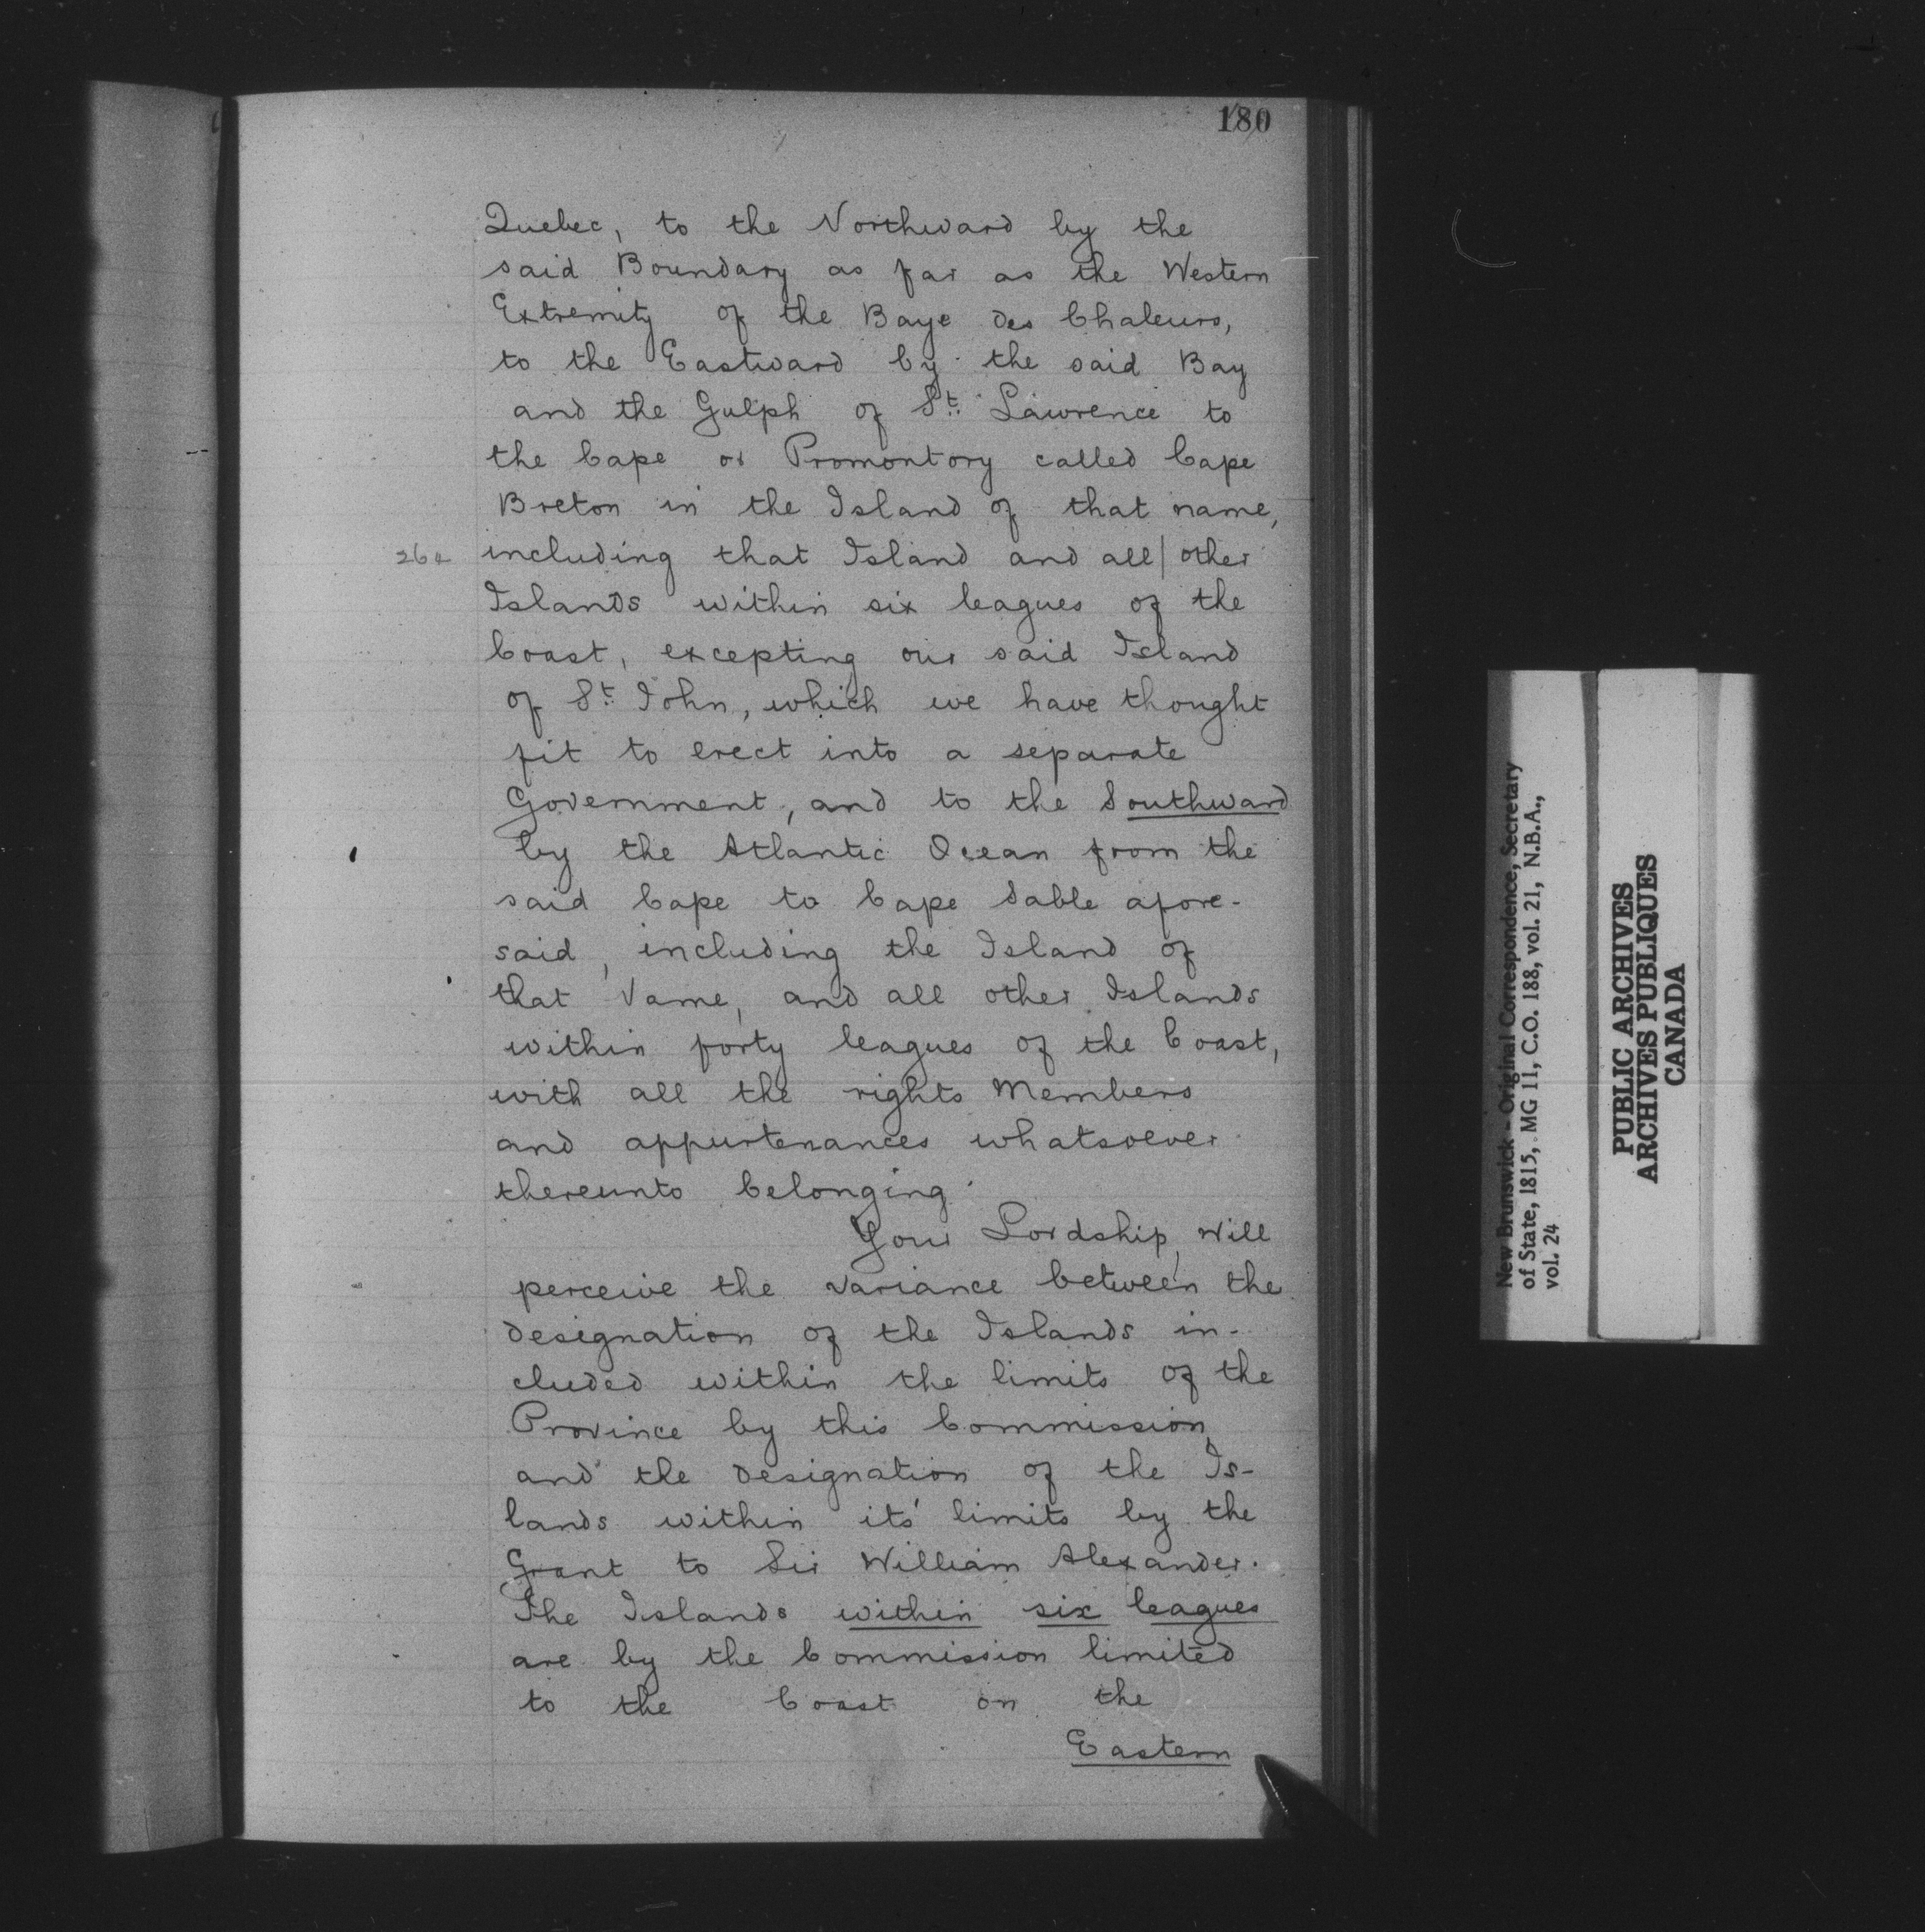 180
Quebec, to the Northward by the
said Boundary as far as the Western
Extremity of the Baye des Chaleurs,
to the Eastward by the said Bay
and the Gulph of St. Lawrence to
the Cape or Promontory called Cape
Breton in the Island of that name,
264 including that Island and all | other
Islands within six leagues of the
Coast, excepting our said Island
of St. John, which we have thought
fit to erect into a separate
Government, and to the Southward
by the Atlantic Ocean from the
said Cape to Cape Sable afore-
said, including the Island of
that Name, and all other Islands
within forty leagues of the Coast,
with all the rights Members
and appurtenances whatsoever
thereunto belonging.
Your Lordship, will
perceive the variance between the
designation of the Islands in-
cluded within the limits of the
Province by this Commission,
and the designation of the Is-
lands within its' limits by the
Grant to Sir William Alexander.
The Islands within six leagues
are by the Commission limited
to the Coast on the
Eastern
New Brunswick - Original Correspondence, Secretary
of State, 1815, MG 11, C.O. 188, vol. 21, N.B.A.,
vol. 24
PUBLIC ARCHIVES
ARCHIVES PUBLIQUES
CANADA